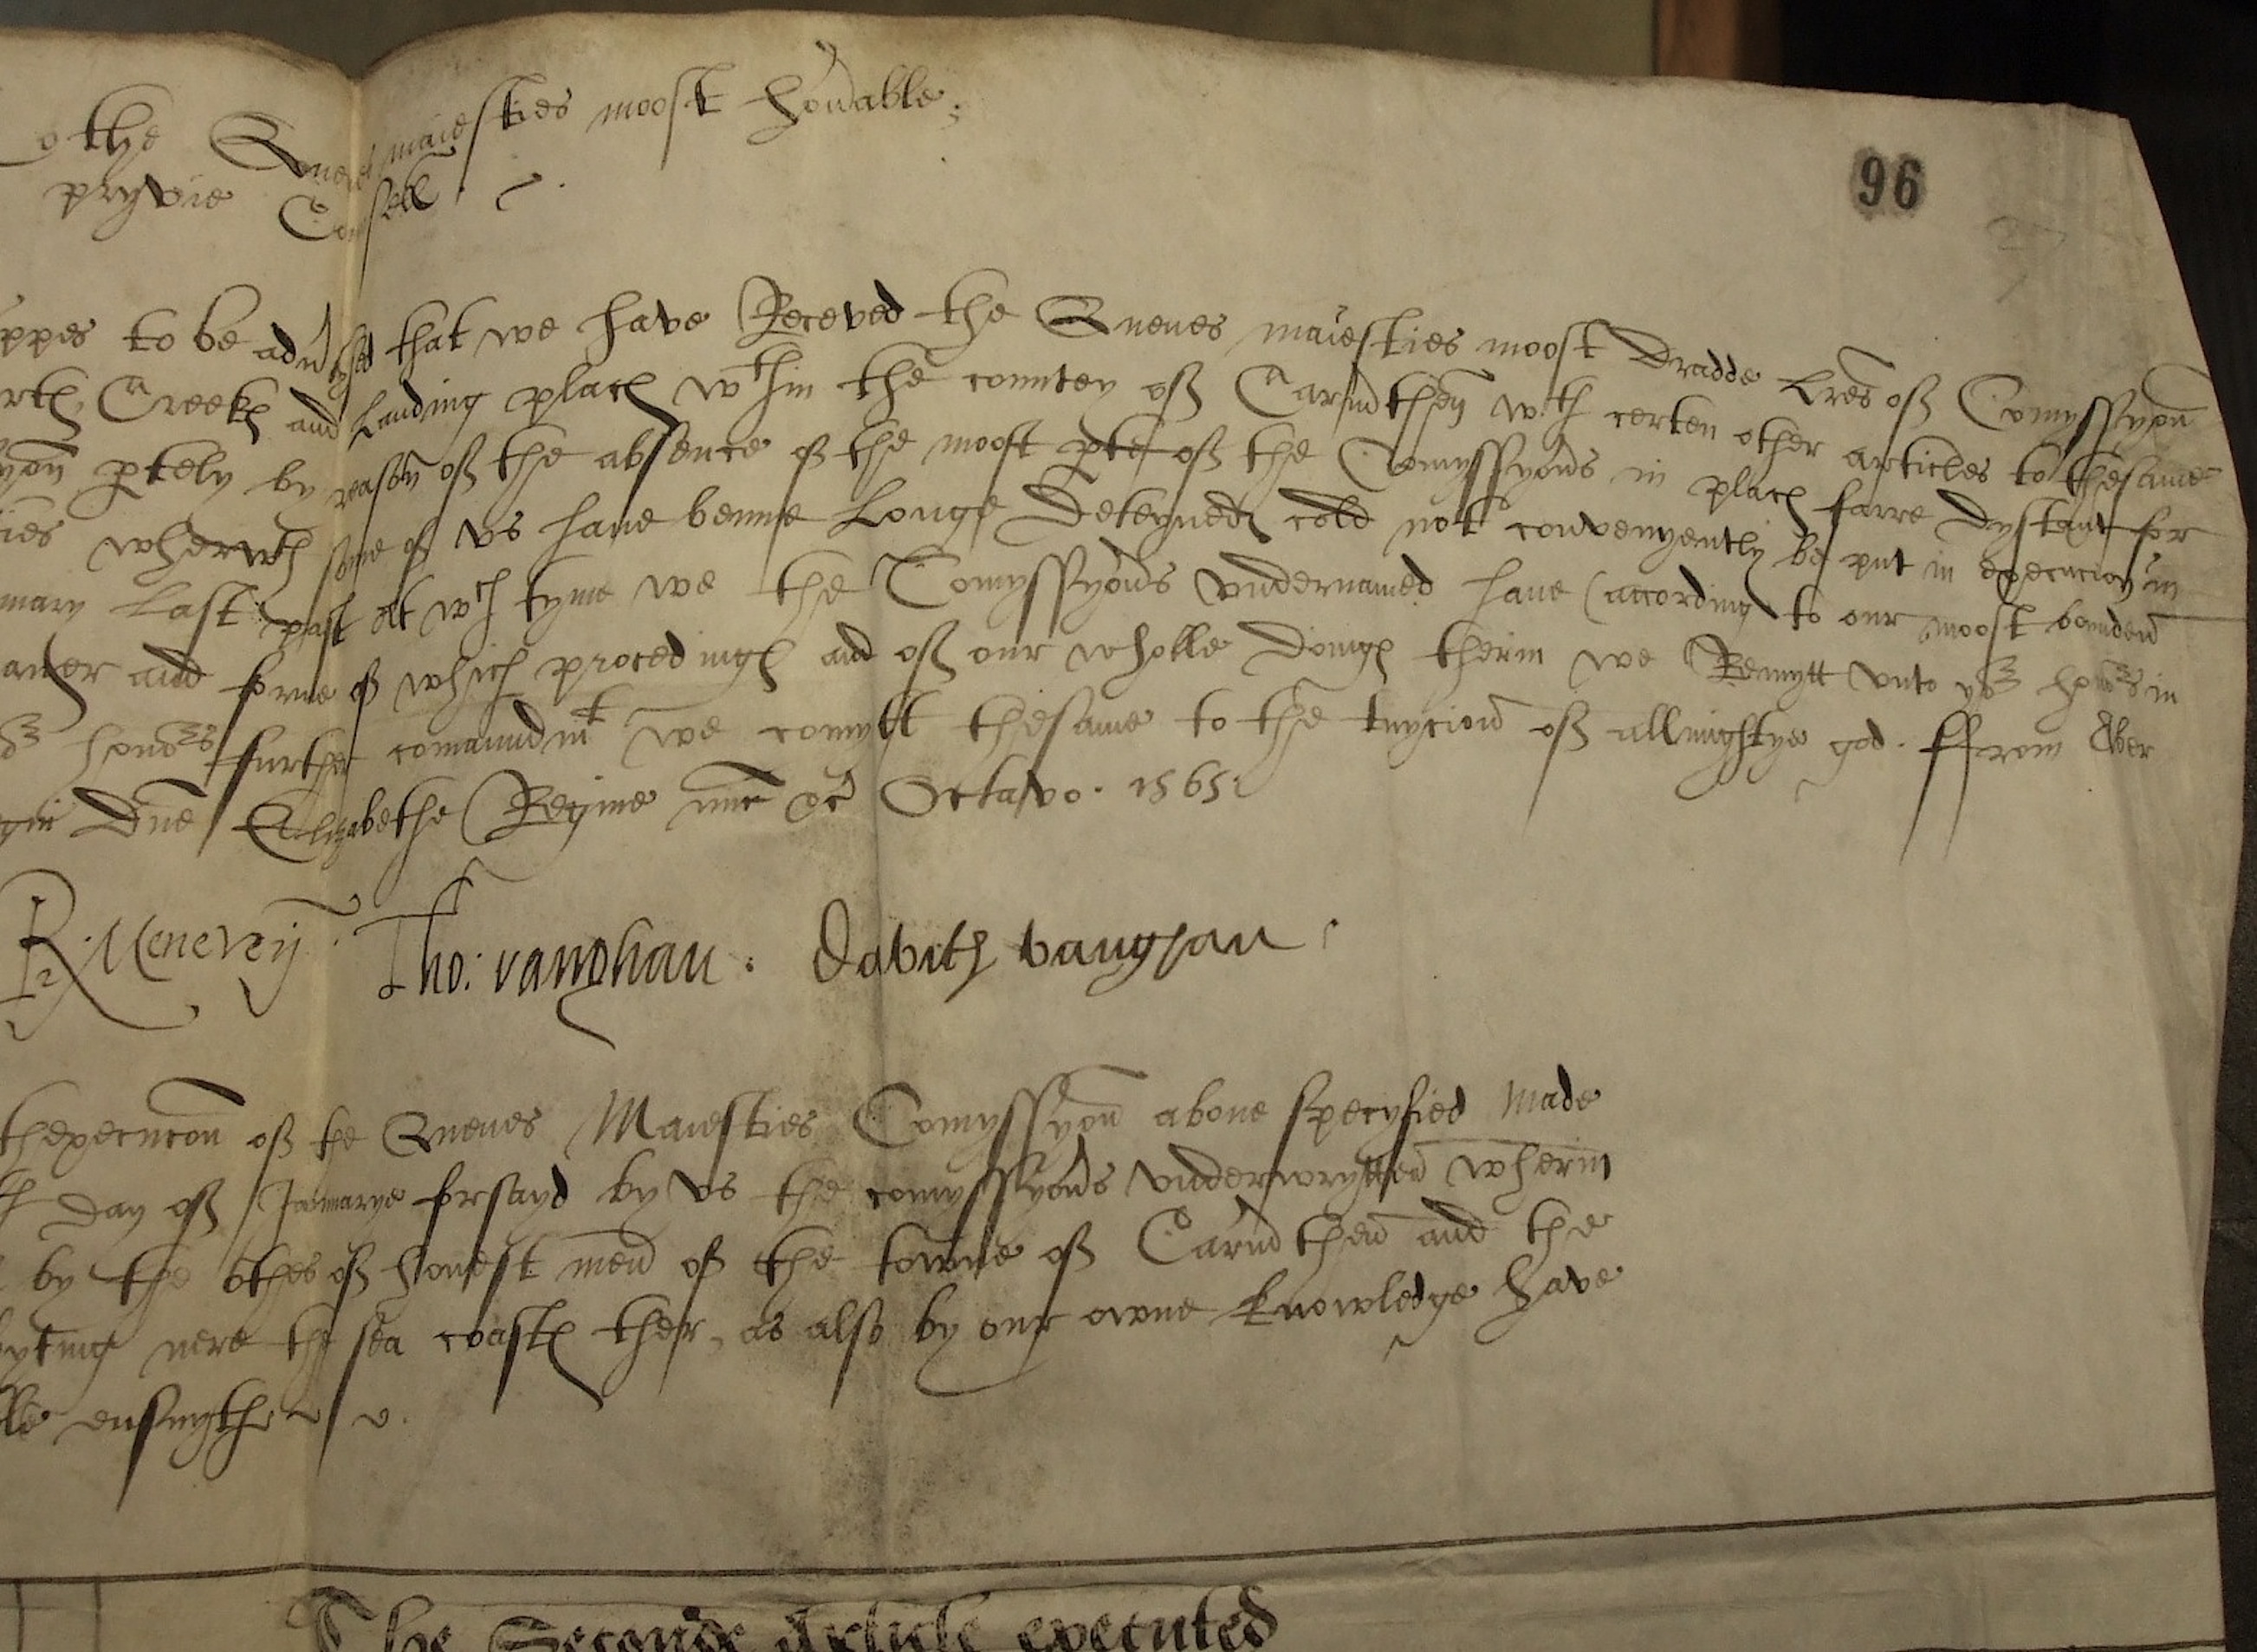 o the Quenes maiesties moost honable
pryvie Consell
96
ppes to be adutysed that we have Receved the Quenes maiesties moost Dradde Lres off Comyssyon
Creek and Landing plac wthin the countey off Carmdthen wth certen other articles to thesame
yon ptely by reason off the absence off the moost pte off the Comyssyons in plac farre Dystant for
ies wherwth some off vs have benne Longe Deteyned cold not convenyently be put in execucion in
nuary Last past At wch tyme we the Comyssyons vndernamed have (according to our moost bounden
aner and forme off which procedinges and off our wholle Doinges therin we Remytt vnto yor honors in
honors further comaundmt we comytt thesame to the tuycion off allmightye god. ffrom Aber
Dne Elizabethe Regine nunc &c Octavo. 1565
R. Meneven Tho: vaughan. davith vaughan.
thexecucon off the Quenes Maiesties Comyssyon above specyfied Made
day off Januarye forsayd by vs the comyssyons vnderwrytten wherin
by the othes off honest men off the towne off Carmdthen and the
byting nere the sea coastes ther, as also by our owne knowledge have
ensuythe
The Seconde Article executed